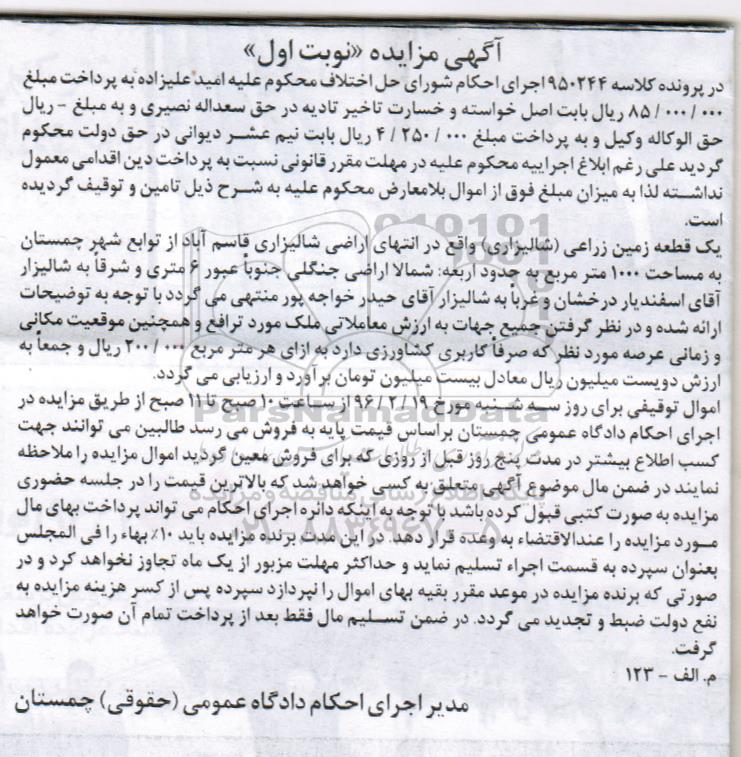 آگهی مزایده «نوبت اول»
در پرونده کلاسه ۹۵۰۲۴۴ اجرای احکام شورای حل اختلاف محکوم علیه امید علیزاده به پرداخت مبلغ
۸۵/۰۰۰/۰۰۰ ریال بابت اصل خواسته و خسارت تاخیر تادیه در حق سعداله نصیری و به مبلغ - ریال
حق الوکاله وکیل و به پرداخت مبلغ ۴/۲۵۰/۰۰۰ ریال بابت نیم عشر دیوانی در حق دولت محکوم
گردید علی رغم ابلاغ اجراییه محکوم علیه در مهلت مقرر قانونی نسبت به پرداخت دین اقدامی معمول
نداشته لذا به میزان مبلغ فوق از اموال بلامعارض محکوم علیه به شرح ذیل تامین و توقیف گردیده
است.
یک قطعه زمین زراعی (شالیزاری) واقع در انتهای اراضی شالیزاری قاسم آباد از توابع شهر چمستان
به مساحت ۱۰۰۰ متر مربع به حدود اربعه: شمالا اراضی جنگلی جنوباً عبور ۶ متری و شرقاً به شالیزار
آقای اسفندیار درخشان و غرباً به شالیزار آقای حیدر خواجه پور منتهی می گردد با توجه به توضیحات
ارائه شده و در نظر گرفتن جمیع جهات به ارزش معاملاتی ملک مورد ترافع و همچنین موقعیت مکانی
و زمانی عرصه مورد نظر که صرفاً کاربری کشاورزی دارد به ازای هر متر مربع ۲۰۰/۰۰۰ ریال و جمعاً به
ارزش دویست میلیون ریال معادل بیست میلیون تومان برآورد و ارزیابی می گردد.
اموال توقیفی برای روز سه شنبه مورخ ۹۶/۲/۱۹ از ساعت ۱۰ صبح تا ۱۱ صبح از طریق مزایده در
اجرای احکام دادگاه عمومی چمستان براساس قیمت پایه به فروش می رسد طالبین می توانند جهت
کسب اطلاع بیشتر در مدت پنج روز قبل از روزی که برای فروش معین گردید اموال مزایده را ملاحظه
نمایند در ضمن مال موضوع آگهی متعلق به کسی خواهد شد که بالاترین قیمت را در جلسه حضوری
مزایده به صورت کتبی قبول کرده باشد با توجه به اینکه دائره اجرای احکام می تواند پرداخت بهای مال
مورد مزایده را عندالاقتضاء به وعده قرار دهد. در این مدت برنده مزایده باید ۱۰٪ بهاء را فی المجلس
بعنوان سپرده به قسمت اجراء تسلیم نماید و حداکثر مهلت مزبور از یک ماه تجاوز نخواهد کرد و در
صورتی که برنده مزایده در موعد مقرر بقیه بهای اموال را نپردازد سپرده پس از کسر هزینه مزایده به
نفع دولت ضبط و تجدید می گردد. در ضمن تسلیم مال فقط بعد از پرداخت تمام آن صورت خواهد
گرفت.
م. الف - ۱۲۳
مدیر اجرای احکام دادگاه عمومی (حقوقی) چمستان
ParsNamadData
پایگاه اطلاع رسانی مناقصه و مزایده
۰۲۱-۸۸۳۴۹۶۷۰-۵